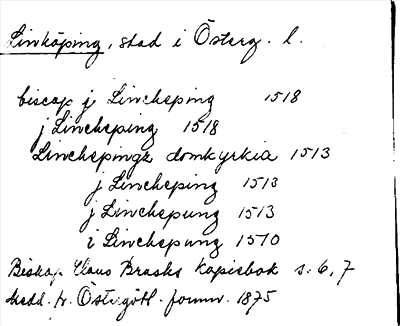 Linköping, stad i Österg. l.
biscop j Lincheping 1518
j Lincheping 1518
Linchepingx domkyrkia 1513
j Lincheping 1513
j Linchepung 1513
i Linchepung 1510
Biskop Claus Brasks kopiebok s. 6, 7
Medd. fr. Östergötl. fornm. 1875